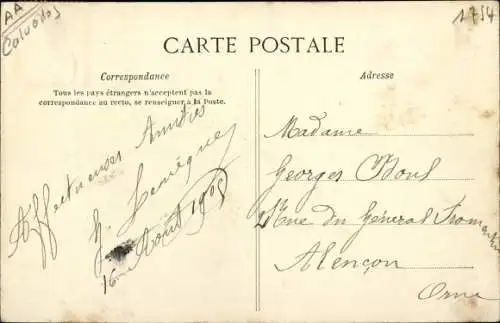 AA
Calvados
1754
CARTE POSTALE
Correspondance
Tous les pays étrangers n'acceptent pas la
correspondance au recto, se renseigner à la Poste.
Affectueuses Amitiés
16 Août 190
Adresse
Madame
Georges
Rue du Général
Alençon
Orne